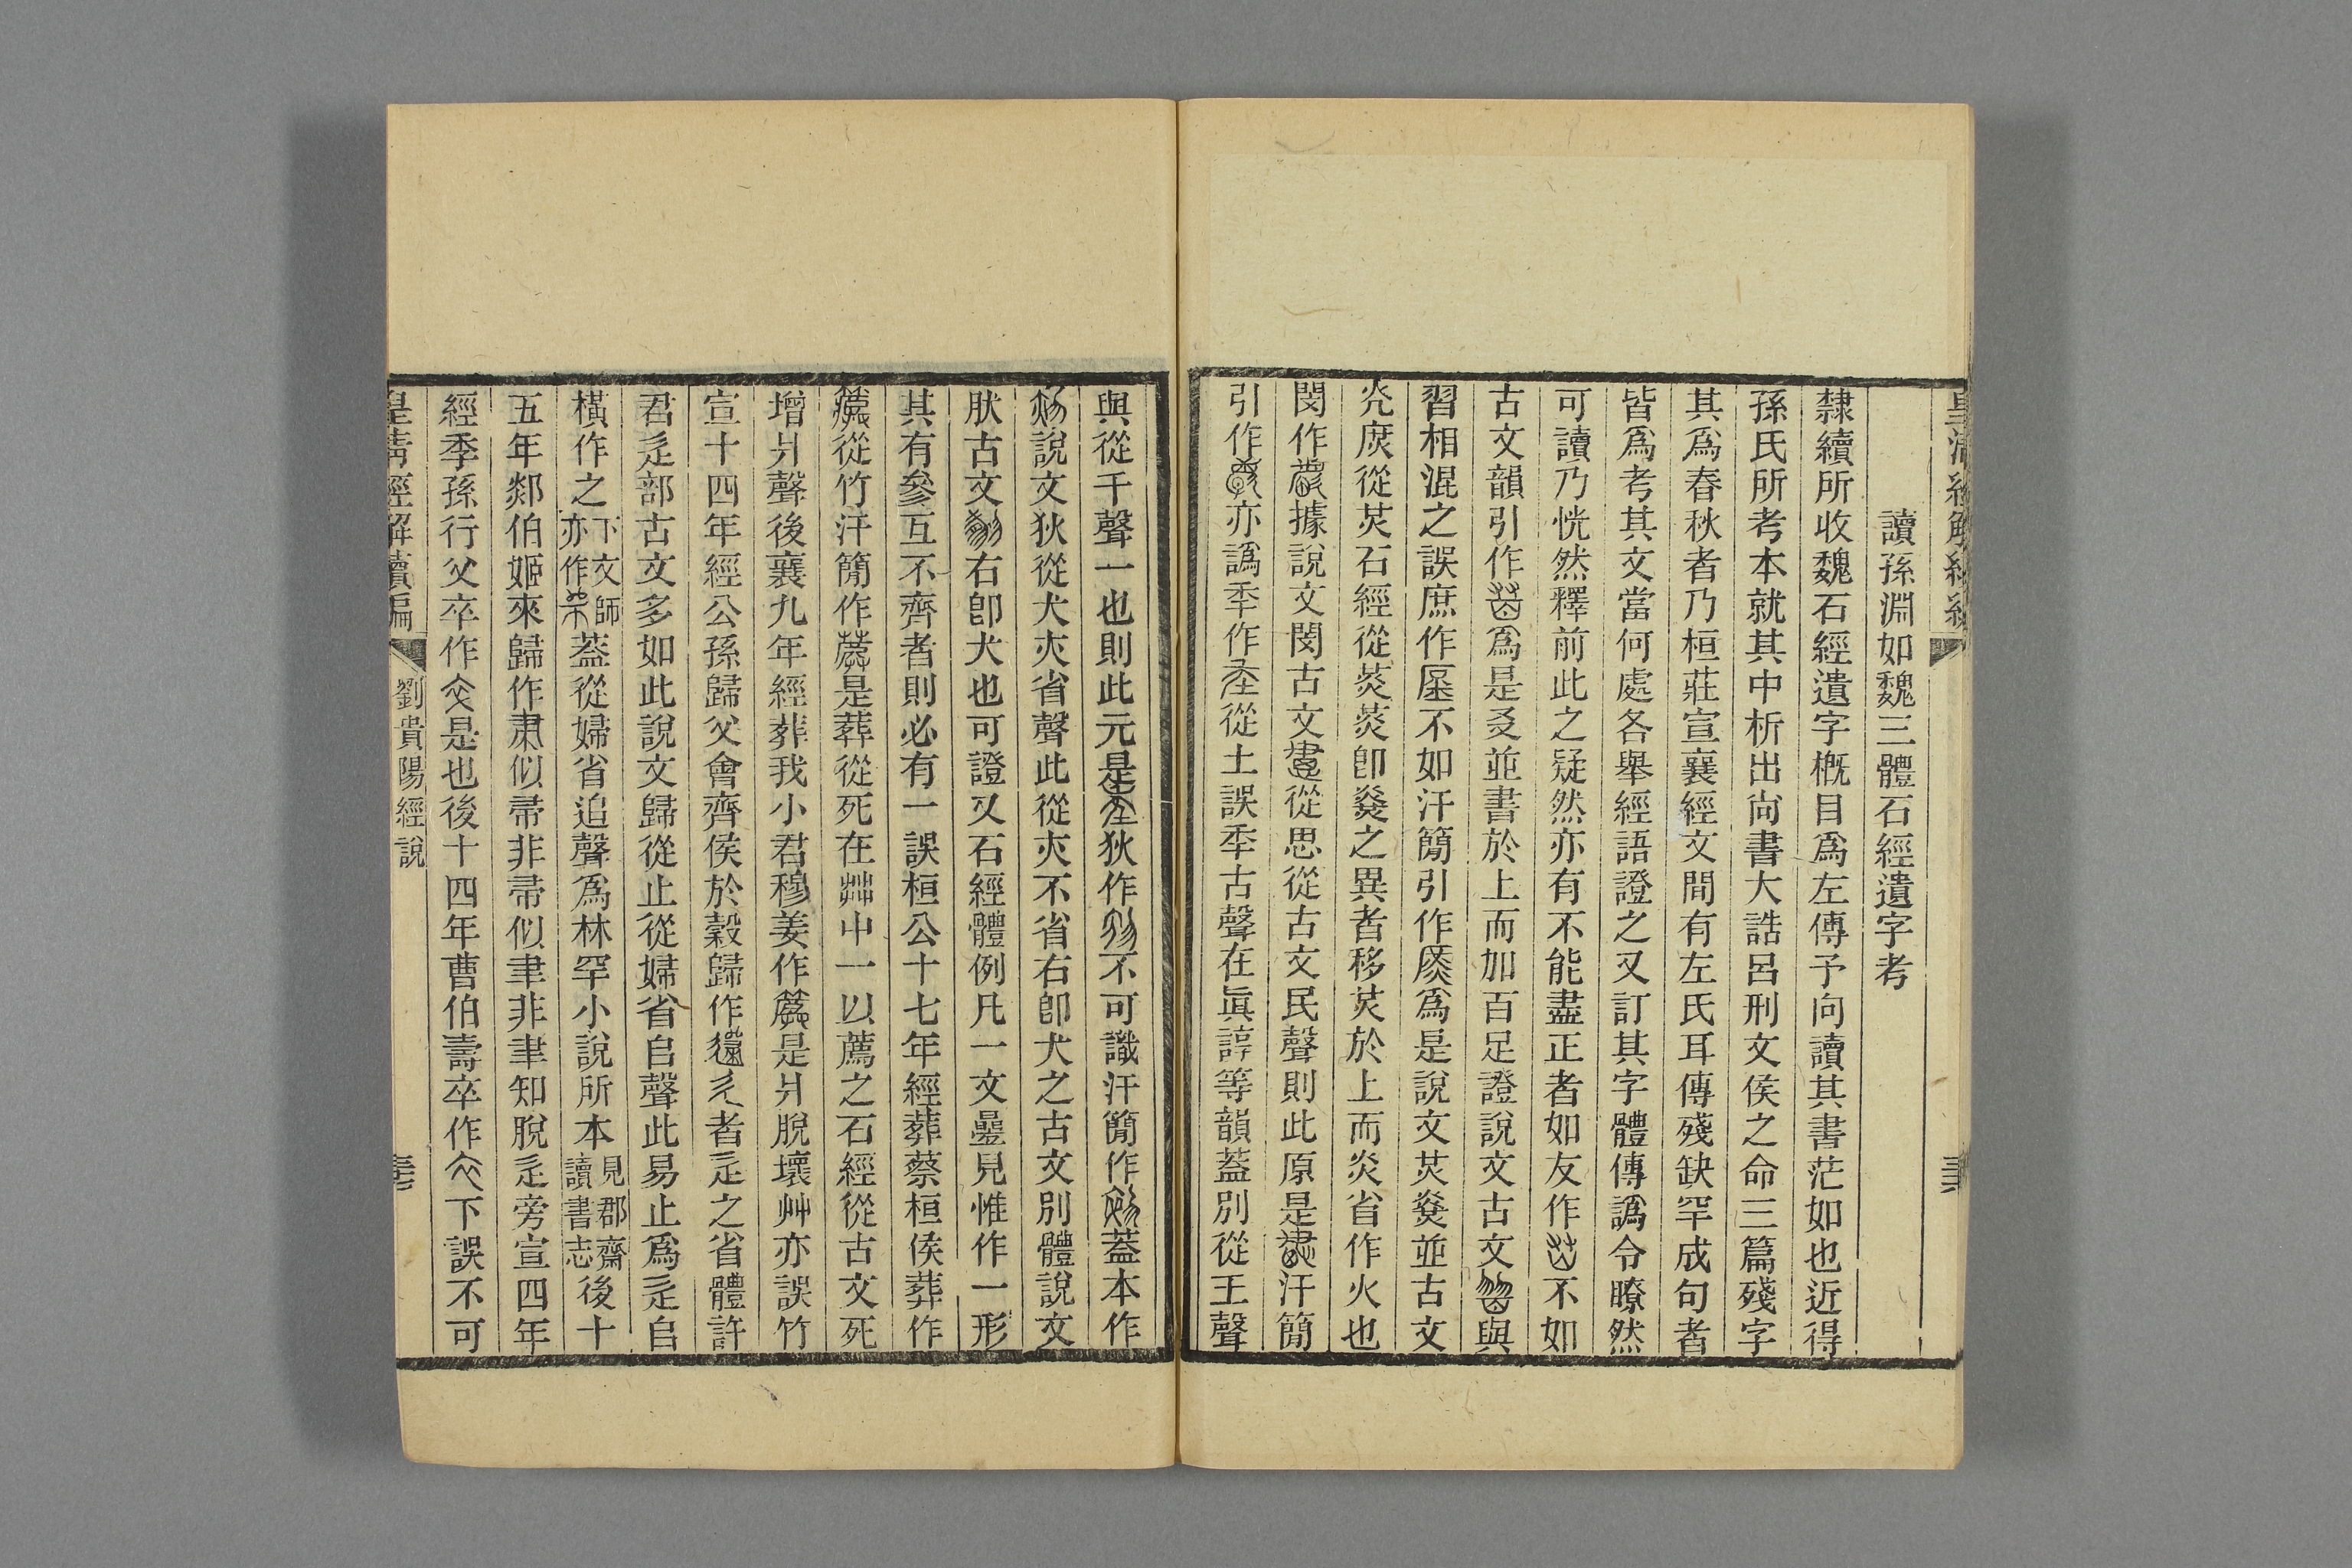 讀孫淵如魏三體石經遺字考
隸續所收魏石經遺字概目爲左傳予向讀其書茫如也近得
孫氏所考本就其中析出尙書大誥呂刑文侯之命三篇殘字
其爲春秋者乃桓莊宣襄經文間有左氏耳傳殘缺罕成句者
皆爲考其文當何處各舉經語證之又訂其字體傳譌令瞭然
可讀乃恍然釋前此之疑然亦有不能盡正者如友作不如
古文韻引作爲是㕛並書於上而加百足證說文古文與
習相混之誤庶作不如汗簡引作爲是說文炗燓並古文
灮庶從炗石經從焂焂卽燓之異者移炗於上而炎省作火也
閔作據說文閔古文從思從古文民聲則此原是汗簡
引作亦譌秊作從土誤秊古聲在眞諄等韻葢別從王聲
與從千聲一也則此元是狄作不可識汗簡作葢本作
說文狄從犬夾省聲此從夾不省右卽犬之古文別體說文
肰古文右卽犬也可證又石經體例凡一文疊見惟作一形
其有參互不齊者則必有一誤桓公十七年經葬蔡桓侯葬作
從竹汗簡作是葬從死在茻中一以薦之石經從古文死
增爿聲後襄九年經葬我小君穆姜作是爿脫壞艸亦誤竹
宣十四年經公孫歸父會齊侯於穀歸作辵者辵之省體許
君辵部古文多如此說文歸從止從婦省𠂤聲此易止爲辵𠂤
橫作之下文師亦作葢從婦省追聲爲林罕小說所本見郡齋讀書志後十
五年郯伯姬來歸作肅似帚非帚似聿非聿知脫辵旁宣四年
經季孫行父卒作是也後十四年曹伯壽卒作下誤不可
皇淸經解續編
劉貴陽經說